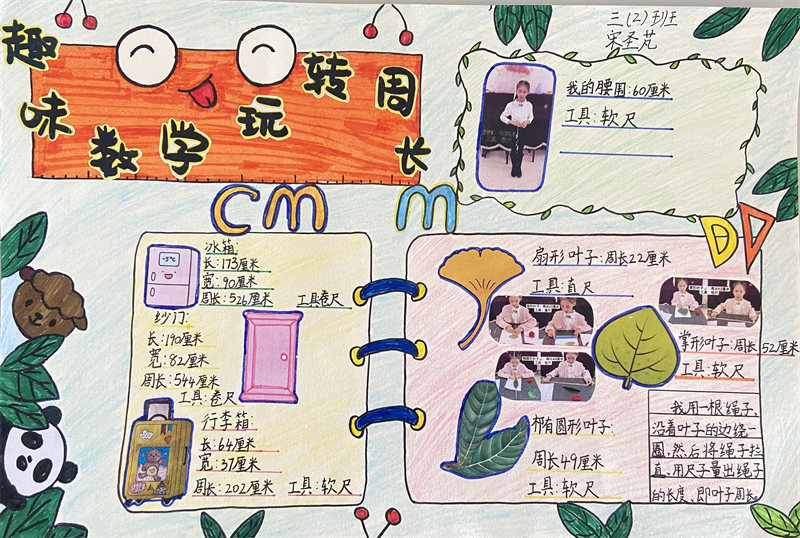 趣味数学玩转周长
三(2)班
宋圣芃
我的腰围:60厘米
工具:软尺
cm m
冰箱:
-5℃
长:173厘米
宽:90厘米
周长:526厘米 工具卷尺
纱门:
长:190厘米
宽:82厘米
周长:544厘米
工具:卷尺
行李箱:
长:64厘米
宽:37厘米
周长:202厘米 工具:软尺
扇形叶子:周长22厘米
工具:直尺
掌形叶子:周长52厘米
工具:软尺
椭圆形叶子:
周长49厘米
工具:软尺
我用一根绳子,
沿着叶子的边绕一
圈,然后将绳子拉
直,用尺子量出绳子
的长度,即叶子周长。